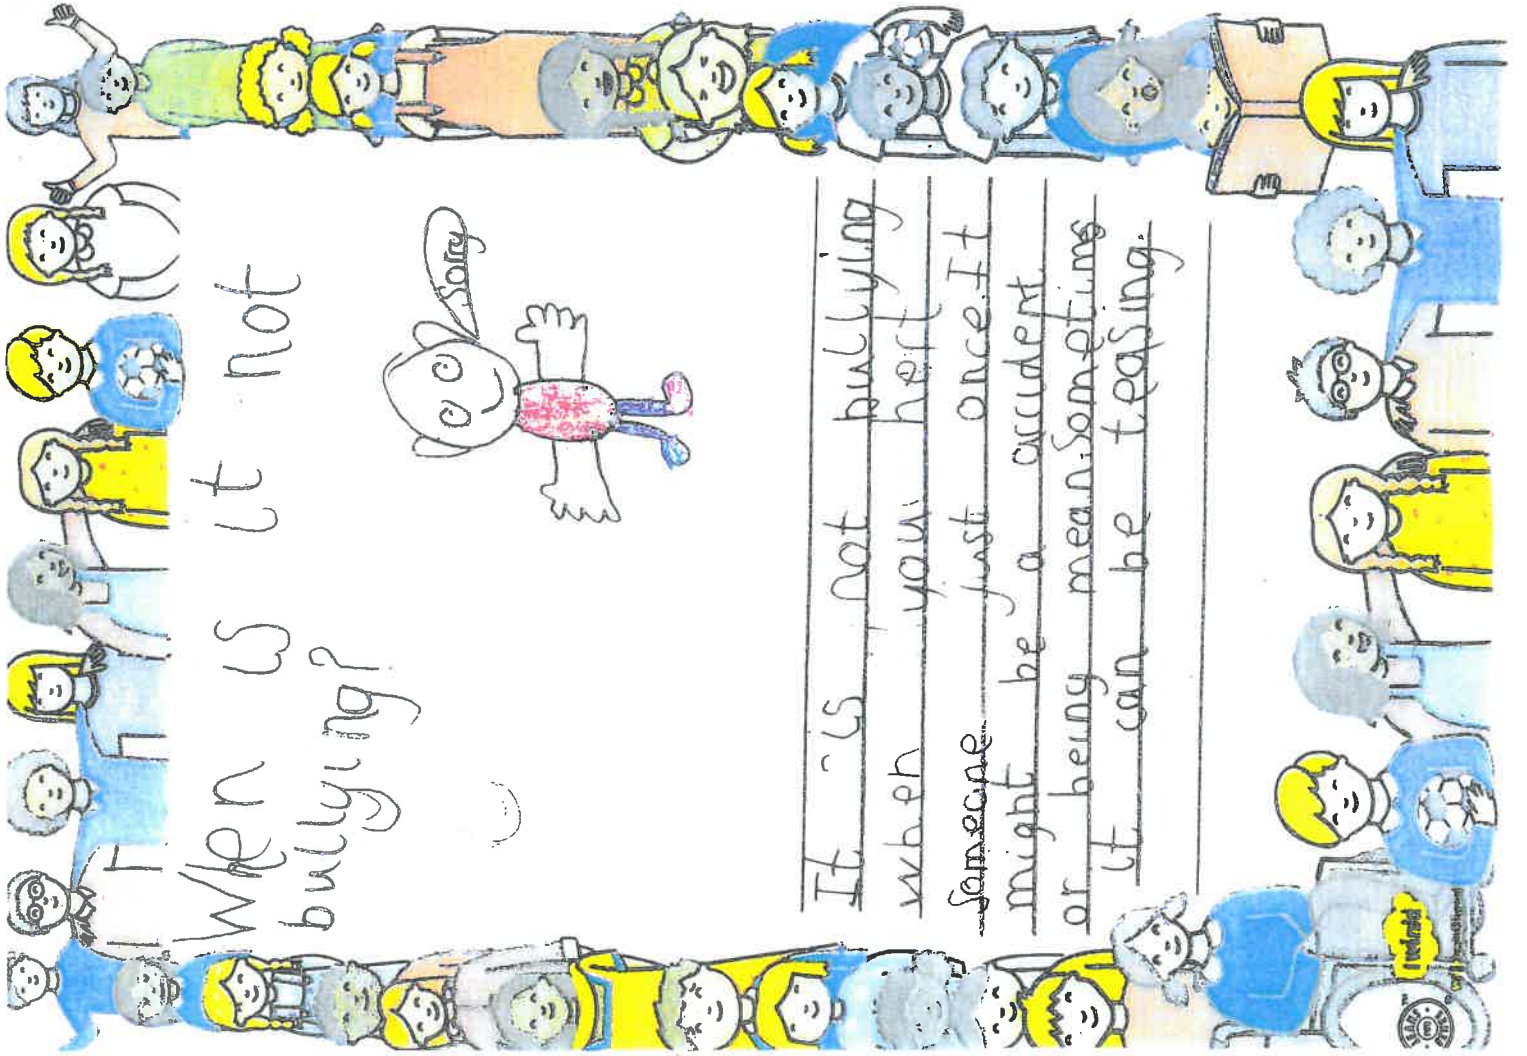 When is it not
bullying?
Sorry
It is not bullying
when you hert
someone just once. It
might be a accident
or being mean. Sometims
it can be teasing.
twinkl